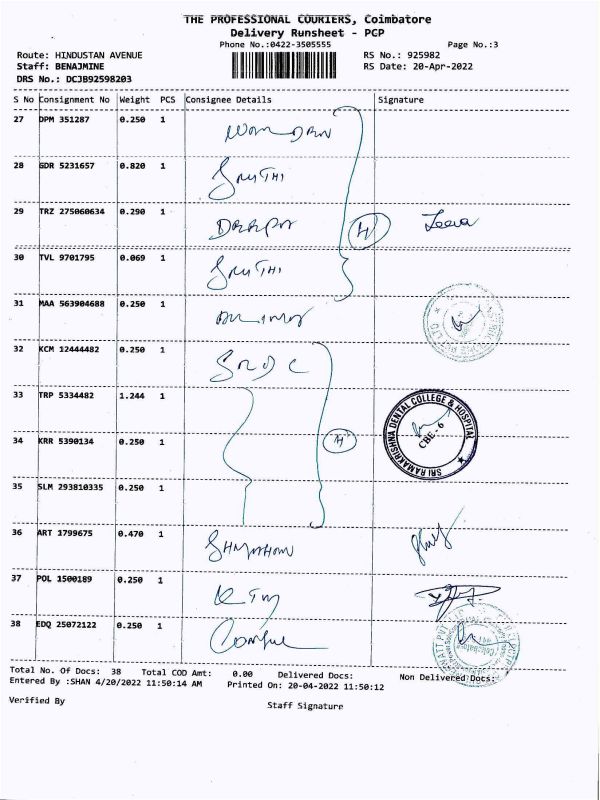 THE PROFESSIONAL COURIERS, Coimbatore
Delivery Runsheet - PCP
Phone No.:0422-3505555 Page No.:3
Route: HINDUSTAN AVENUE RS No.: 925982
Staff: BENAJMINE RS Date: 20-Apr-2022
DRS No.: DCJB92598203
S No Consignment No Weight PCS Consignee Details Signature
27 DPM 351287 0.250 1
28 GDR 5231657 0.820 1 SRUTHI
29 TRZ 275060634 0.290 1 4
30 TVL 9701795 0.069 1 SRUTHI
31 MAA 563904688 0.250 1
32 KCM 12444482 0.250 1 SRDC
33 TRP 5334482 1.244 1 SRI RAMAKRISHNA DENTAL COLLEGE & HOSPITAL CBE-6
34 KRR 5390134 0.250 1 4
35 SLM 293810335 0.250 1
36 ART 1799675 0.470 1
37 POL 1500189 0.250 1
38 EDQ 25072122 0.250 1
Total No. Of Docs: 38 Total COD Amt: 0.00 Delivered Docs: Non Delivered Docs:
Entered By :SHAN 4/20/2022 11:50:14 AM Printed On: 20-04-2022 11:50:12
Verified By Staff Signature